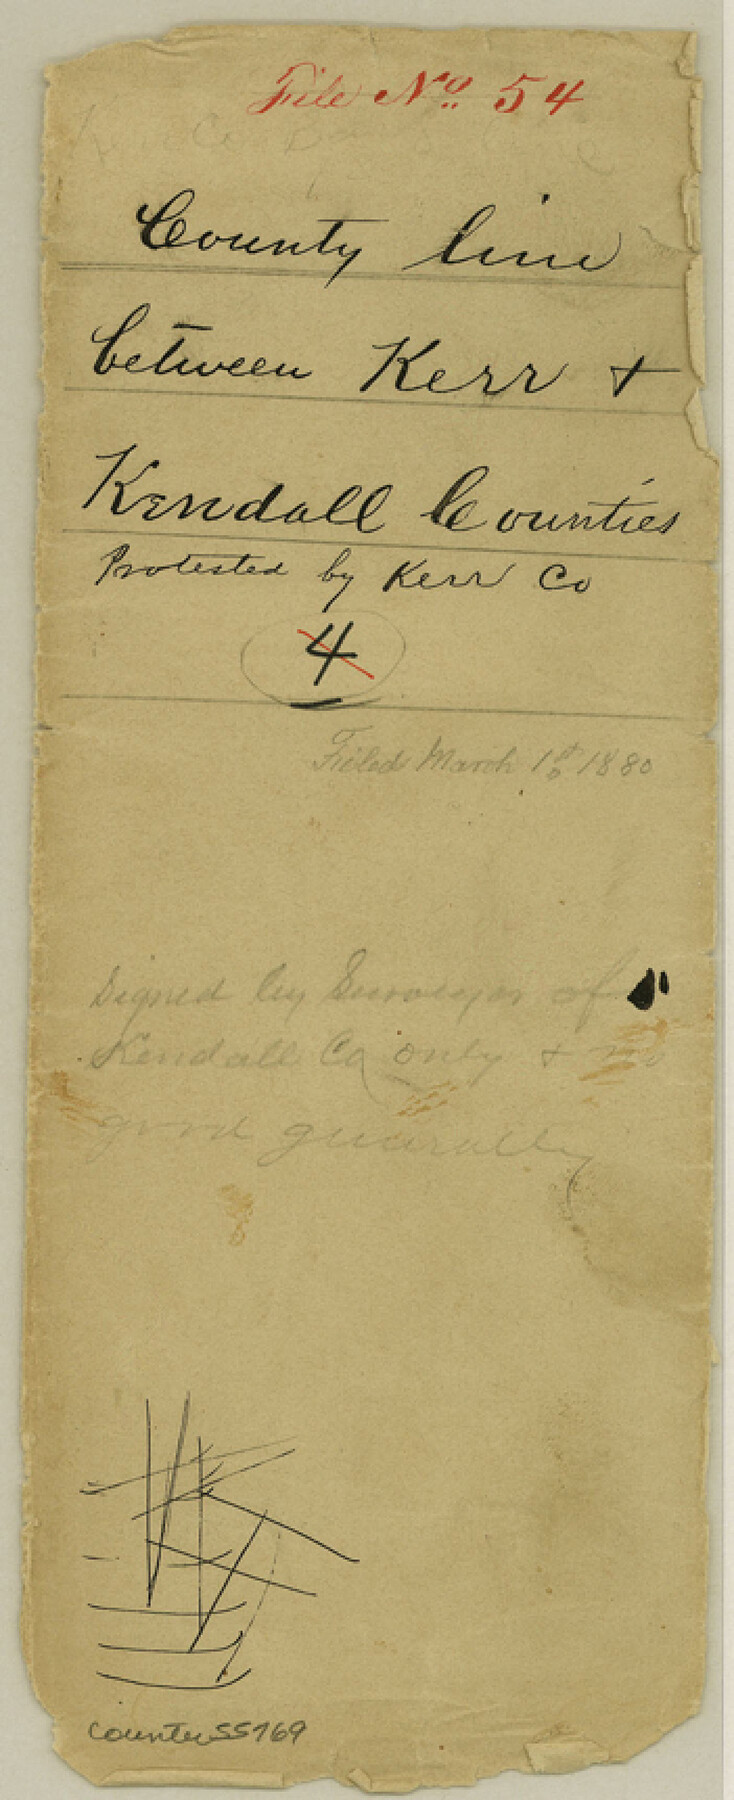 File No. 54
County line
between Kerr +
Kendall Counties
Protested by Kerr Co
4
Filed March 1st 1880
Signed by Surveyor of
Kendall Co only + no
good generally
counter 55769